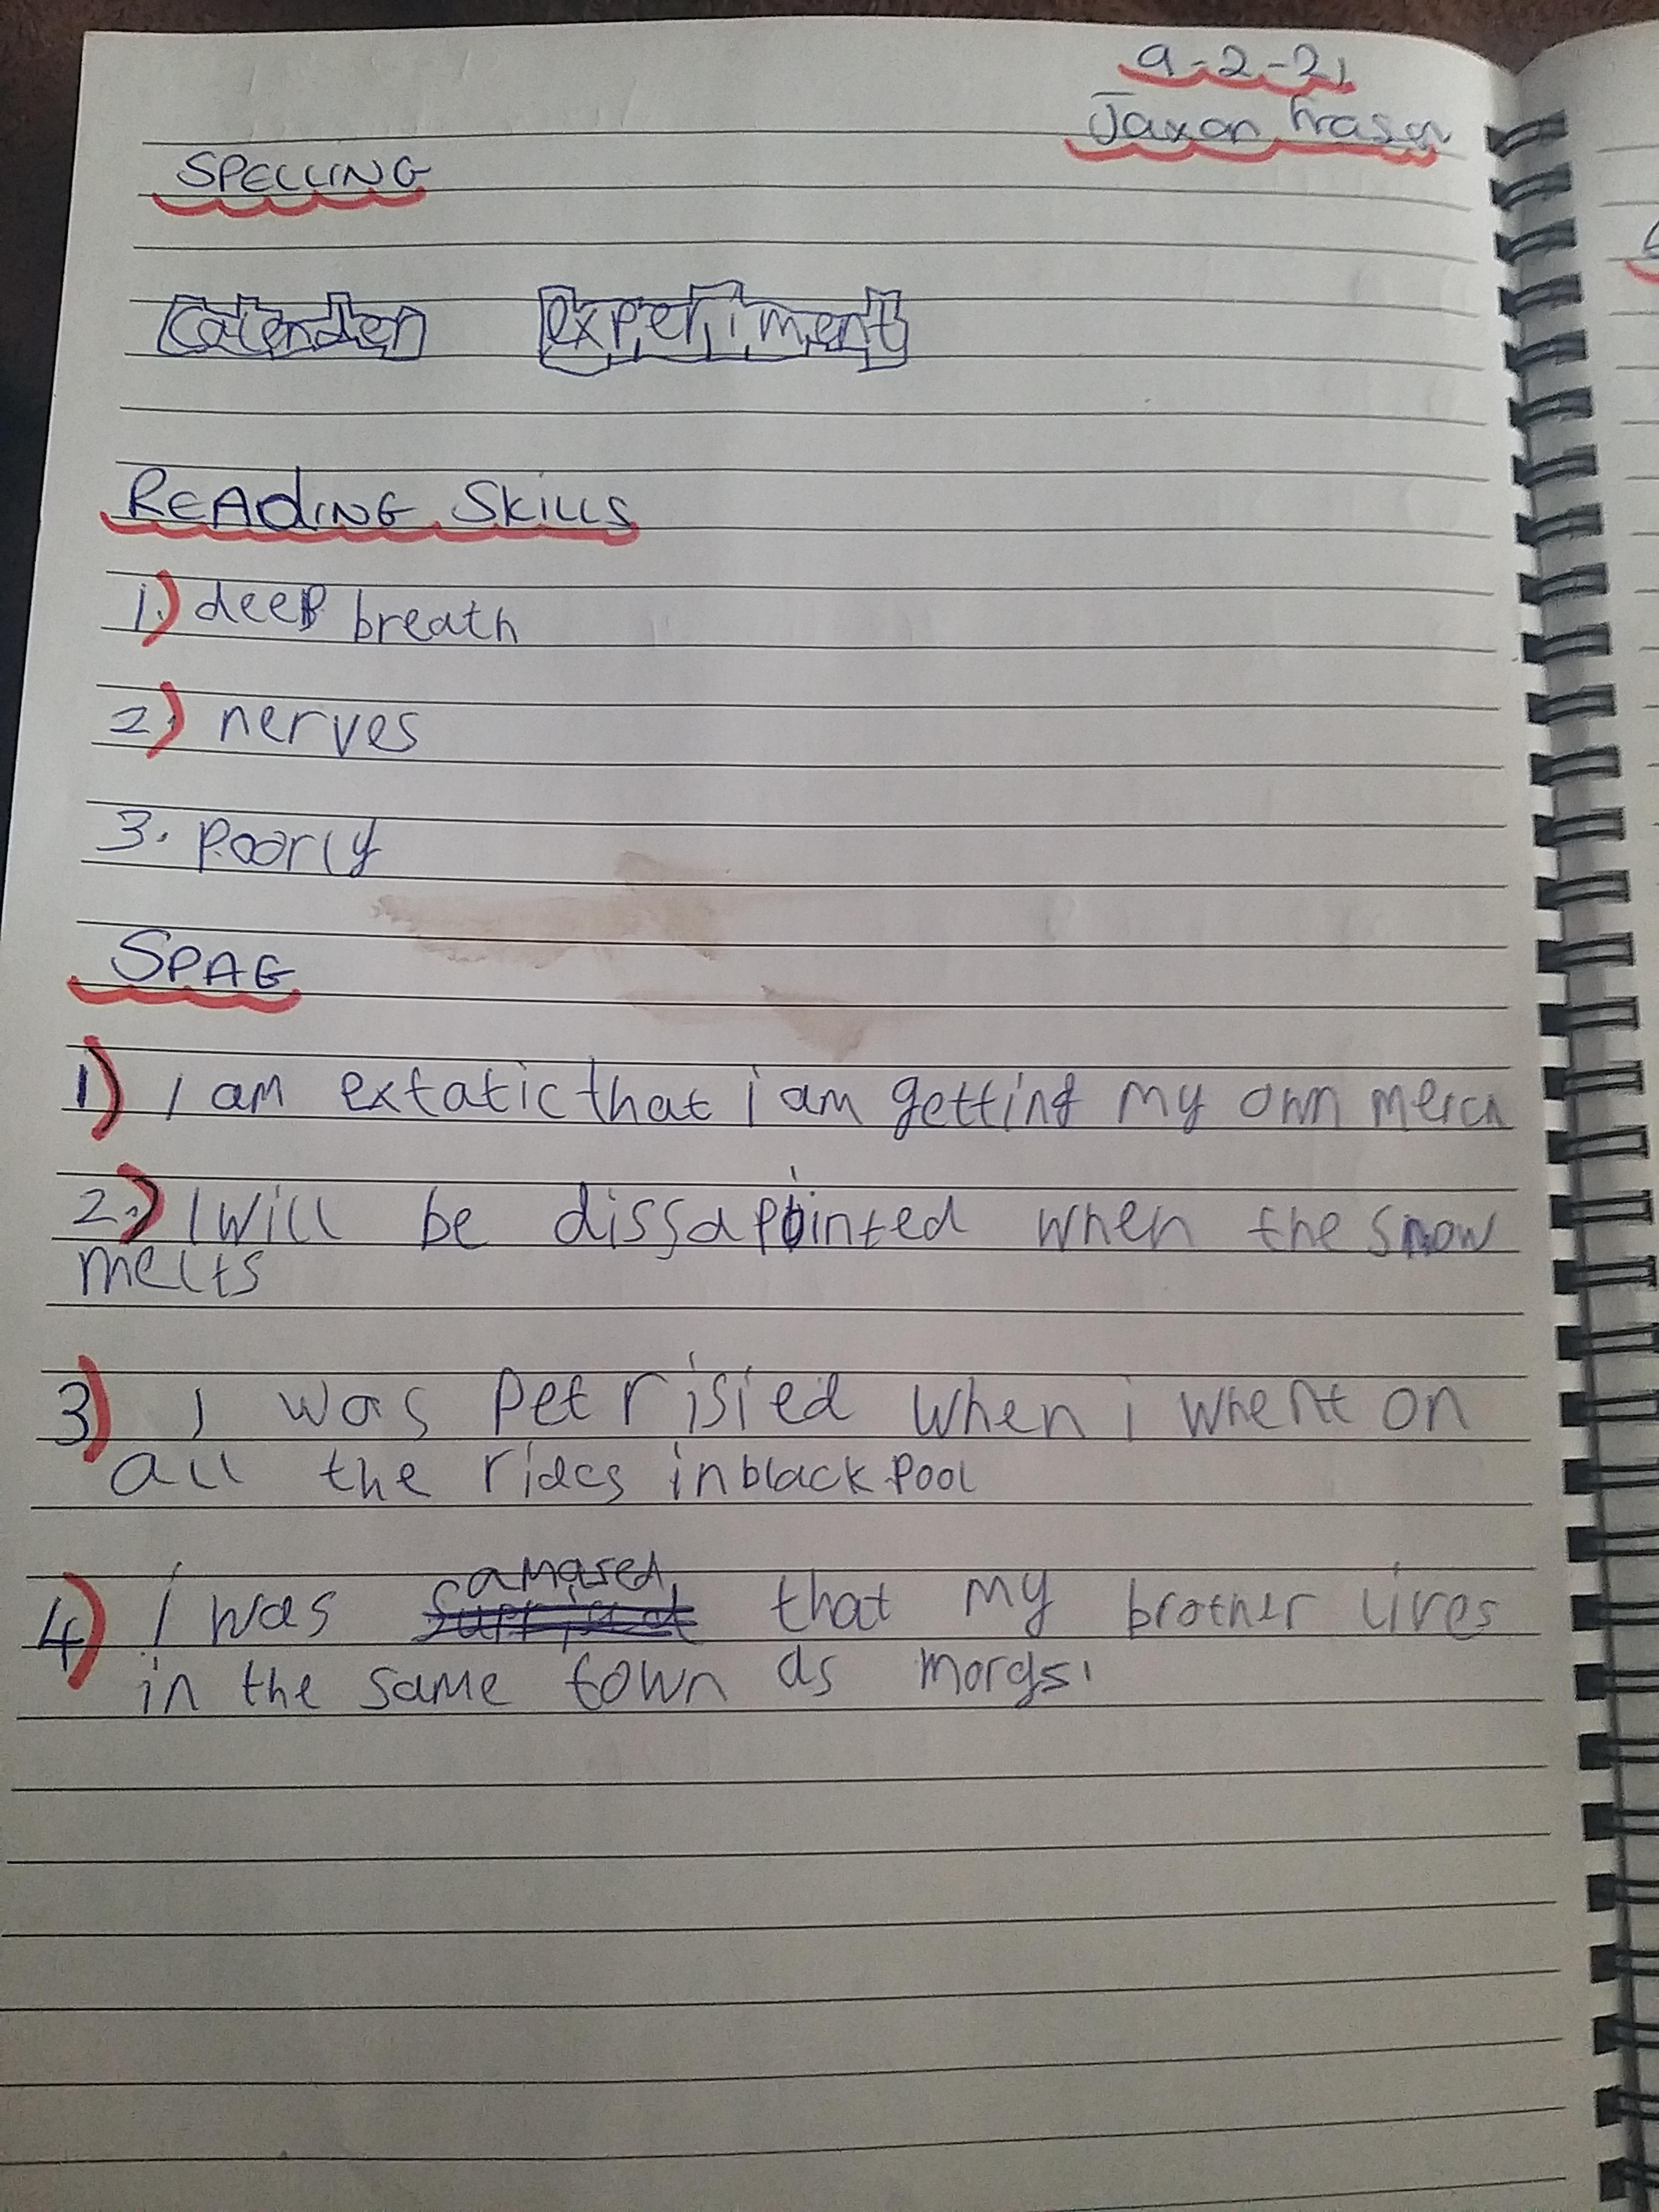 9-2-21
Jaxon fraser
SPELLING
Calender experiment
READING SKILLS
1.) deep breath
2.) nerves
3. Poorly
SPAG
1) I am extatic that i am getting my own merch
2.) I will be dissapointed when the snow
melts
3) I was Petrisied when i whent on
all the rides in black Pool
4) I was amased that my brother lives
in the same town as morgs.